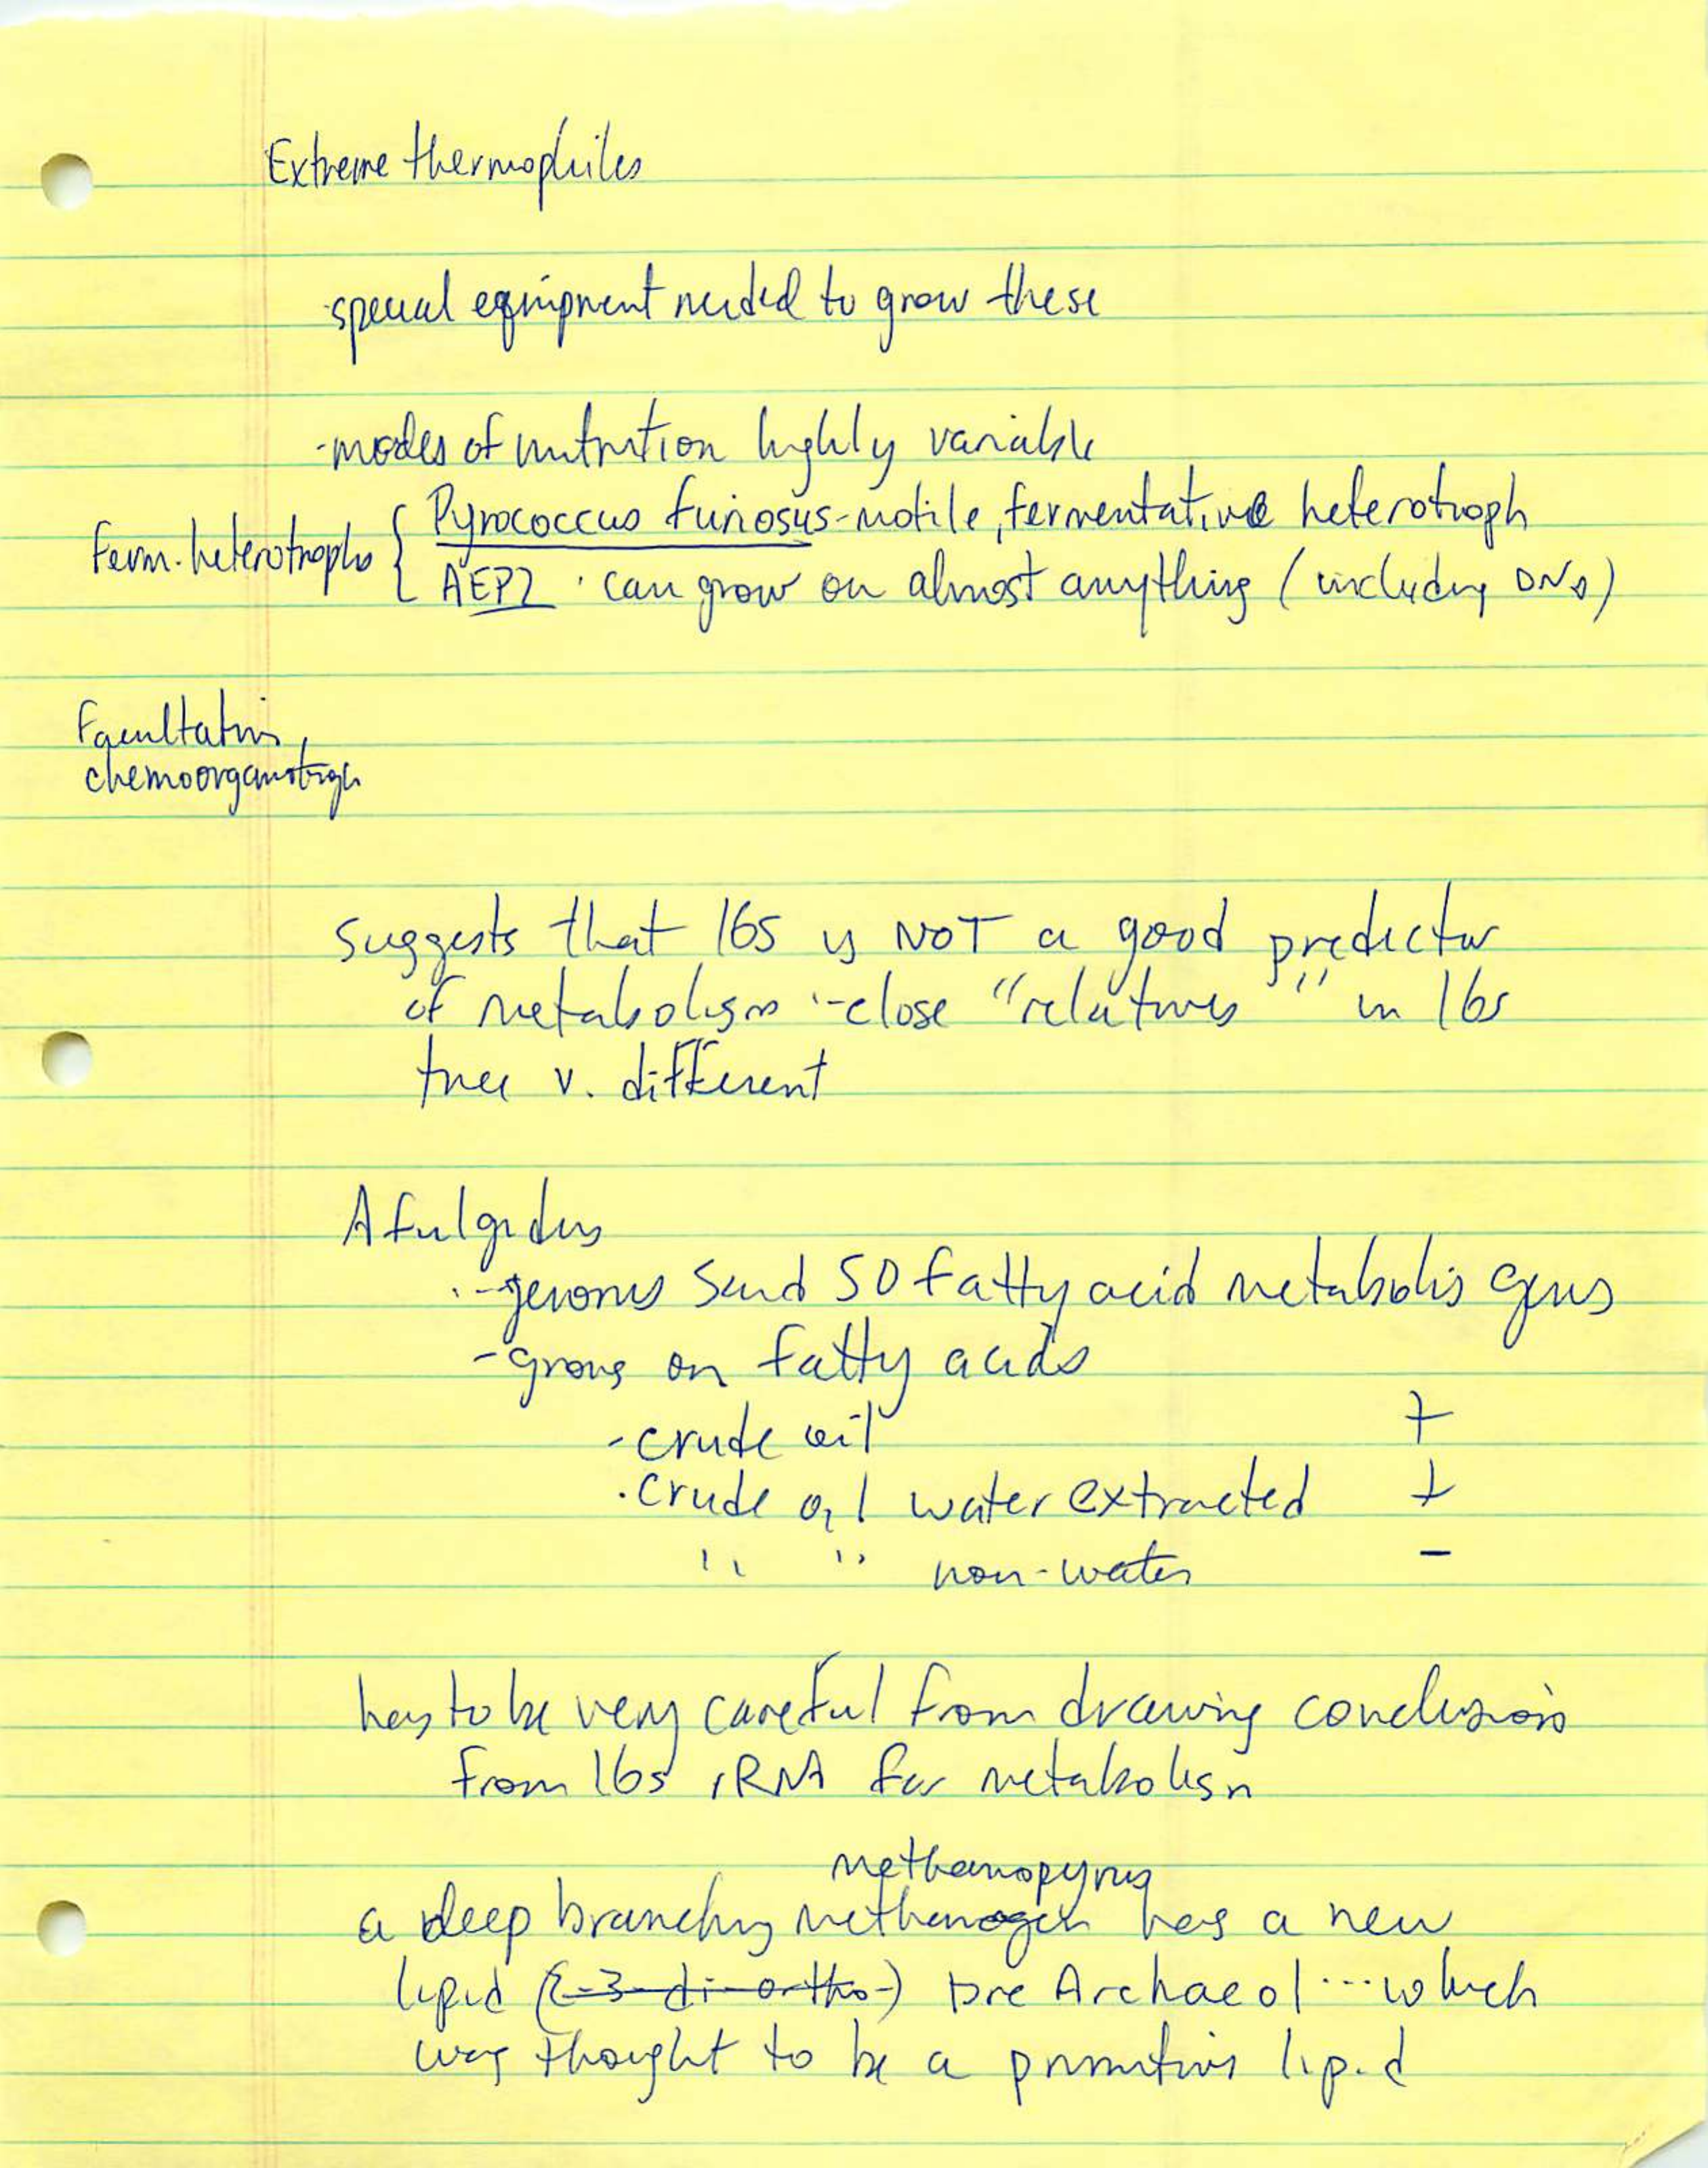 Extreme thermophiles
-special equipment needed to grow these
-modes of nutrition highly variable
Ferm. heterotrophs { Pyrococcus furiosus-motile, fermentative heterotroph
AEPII · can grow on almost anything (including DNA)
Facultative
chemoorganotroph
suggests that 16s is NOT a good predictor
of metabolism - close "relatives" in 16s
tree v. different
A fulgidus
- genome said 50 fatty acid metabolis genes
- grows on fatty acids
- crude oil +
· crude oil water extracted +
" " non-water -
has to be very careful from drawing conclusions
from 16s rRNA for metabolism
methanopyrus
a deep branching methanogen has a new
lipid (2-3-di-ortho-) pre Archaeol ... which
was thought to be a primitive lipid